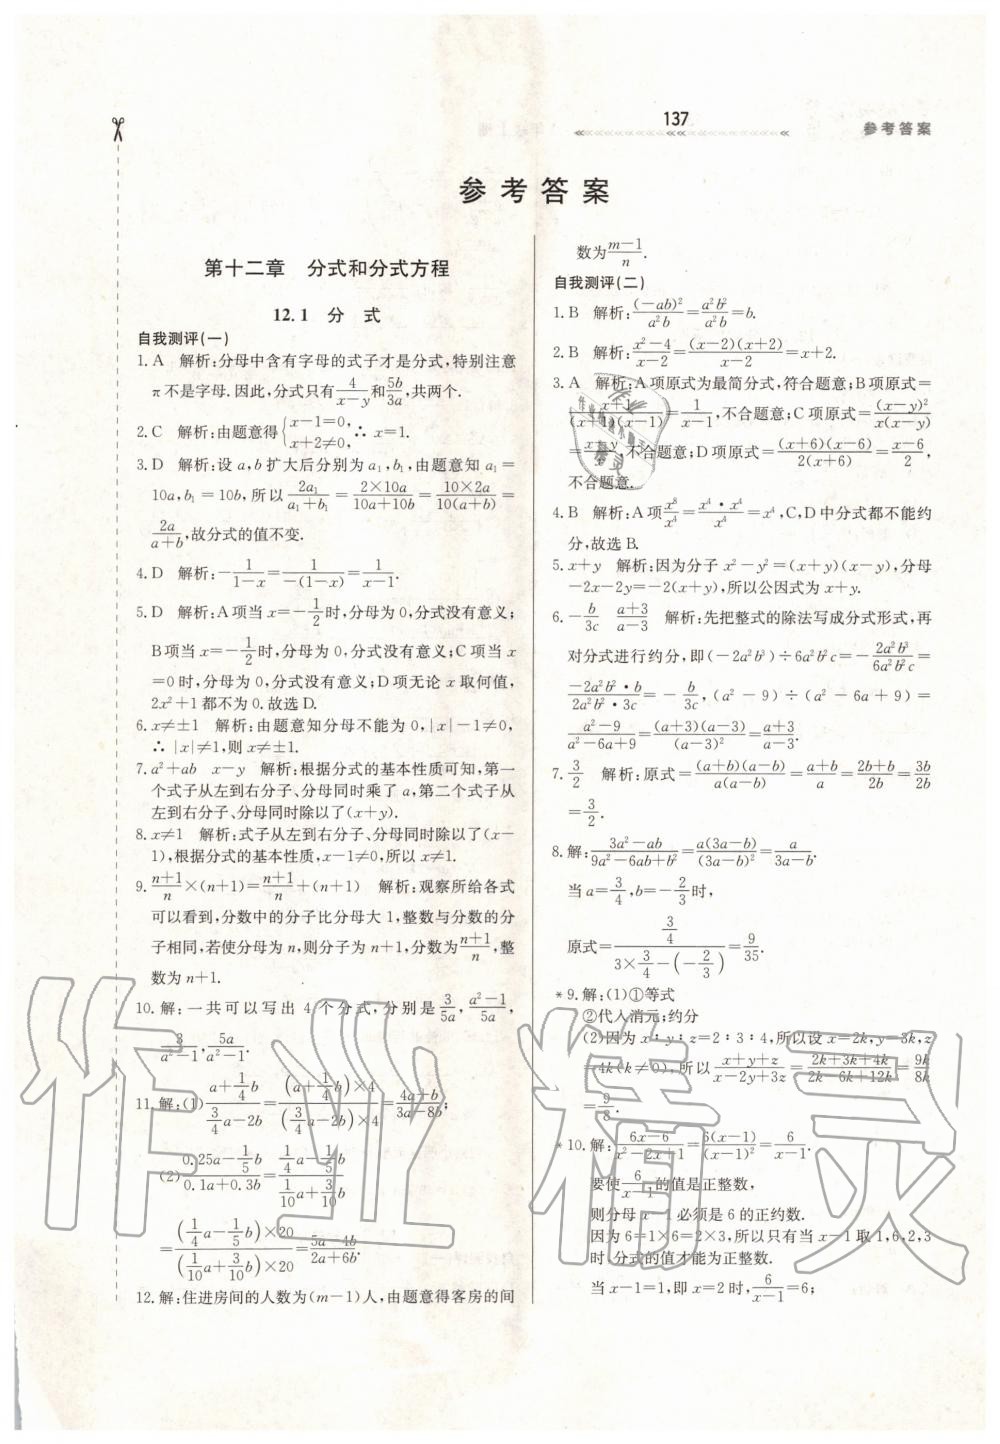 137
参考答案
参考答案
第十二章 分式和分式方程
12.1 分 式
自我测评(一)
1. A 解析:分母中含有字母的式子才是分式,特别注意
π不是字母.因此,分式只有4/(x-y)和5b/3a,共两个.
2. C 解析:由题意得{x-1=0, x+2≠0, ∴ x=1.
3. D 解析:设 a,b 扩大后分别为 a₁,b₁,由题意知 a₁=
10a,b₁=10b,所以 2a₁/(a₁+b₁)=(2×10a)/(10a+10b)=(10×2a)/(10(a+b))=
2a/(a+b),故分式的值不变.
4. D 解析:-1/(1-x)=1/(-(1-x))=1/(x-1).
5. D 解析:A项当 x=-1/2时,分母为0,分式没有意义;
B项当 x=-1/2时,分母为0,分式没有意义;C项当 x
=0时,分母为0,分式没有意义;D项无论 x 取何值,
2x²+1都不为0.故选D.
6. x≠±1 解析:由题意知分母不能为0,|x|-1≠0,
∴ |x|≠1,则 x≠±1.
7. a²+ab x-y 解析:根据分式的基本性质可知,第一
个式子从左到右分子、分母同时乘了 a,第二个式子从
左到右分子、分母同时除以了(x+y).
8. x≠1 解析:式子从左到右分子、分母同时除以了(x-
1),根据分式的基本性质,x-1≠0,所以 x≠1.
9. (n+1)/n×(n+1)=(n+1)/n+(n+1) 解析:观察所给各式
可以看到,分数中的分子比分母大1,整数与分数的分
子相同,若使分母为 n,则分子为 n+1,分数为(n+1)/n,整
数为 n+1.
10. 解:一共可以写出4个分式,分别是 3/5a,(a²-1)/5a,
3/(a²-1),5a/(a²-1).
11. 解:(1)(a+1/4 b)/(3/4 a-2b)=((a+1/4 b)×4)/((3/4 a-2b)×4)=(4a+b)/(3a-8b);
(2)(0.25a-1/5 b)/(0.1a+0.3b)=(1/4 a-1/5 b)/(1/10 a+3/10 b)
=((1/4 a-1/5 b)×20)/((1/10 a+3/10 b)×20)=(5a-4b)/(2a+6b).
12. 解:住进房间的人数为(m-1)人,由题意得客房的间
数为(m-1)/n.
自我测评(二)
1. B 解析:(-ab)²/a²b=a²b²/a²b=b.
2. B 解析:(x²-4)/(x-2)=((x-2)(x+2))/(x-2)=x+2.
3. A 解析:A项原式为最简分式,符合题意;B项原式=
(x+1)/((x+1)(x-1))=1/(x-1),不合题意;C项原式=(x-y)²/(x(x-y))
=(x-y)/x,不合题意;D项原式=((x+6)(x-6))/(2(x+6))=(x-6)/2,
不合题意.
4. B 解析:A项x⁸/x⁴=(x⁴·x⁴)/x⁴=x⁴,C,D中分式都不能约
分,故选B.
5. x+y 解析:因为分子 x²-y²=(x+y)(x-y),分母
-2x-2y=-2(x+y),所以公因式为 x+y.
6. -b/3c (a+3)/(a-3) 解析:先把整式的除法写成分式形式,再
对分式进行约分,即(-2a²b³)÷6a²b²c=-2a²b³/6a²b²c=
(-2a²b²·b)/(2a²b²·3c)=-b/3c,(a²-9)÷(a²-6a+9)=
(a²-9)/(a²-6a+9)=((a+3)(a-3))/(a-3)²=(a+3)/(a-3).
7. 3/2 解析:原式=((a+b)(a-b))/(a(a-b))=(a+b)/a=(2b+b)/2b=3b/2b
=3/2.
8. 解:(3a²-ab)/(9a²-6ab+b²)=(a(3a-b))/(3a-b)²=a/(3a-b).
当 a=3/4,b=-2/3时,
原式=(3/4)/(3×3/4-(-2/3))=9/35.
*9. 解:(1)①等式
②代入消元;约分
(2)因为 x∶y∶z=2∶3∶4,所以设 x=2k,y=3k,z
=4k(k≠0),所以(x+y+z)/(x-2y+3z)=(2k+3k+4k)/(2k-6k+12k)=9k/8k
=9/8.
*10. 解:(6x-6)/(x²-2x+1)=6(x-1)/(x-1)²=6/(x-1).
要使6/(x-1)的值是正整数,
则分母 x-1必须是6的正约数.
因为6=1×6=2×3,所以只有当 x-1取1,6,2,3
时,分式的值才能为正整数.
当 x-1=1,即 x=2时,6/(x-1)=6;
作业精灵